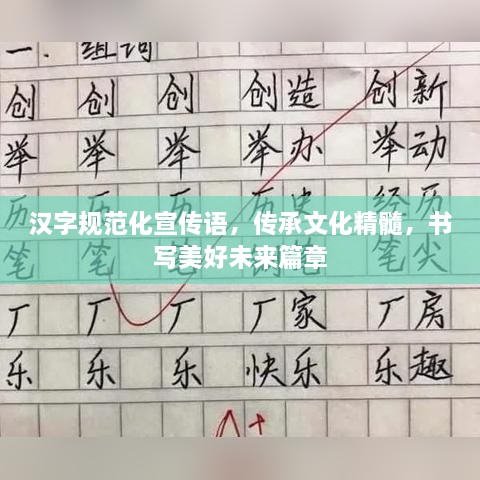 一. 组词
创 创 创 创造 创新
举 举 举 举办 举动
历 历 历 历史 经历
汉字规范化宣传语，传承文化精髓，书
写美好未来篇章
笔 笔 笔 笔尖
厂 厂 厂 厂家 厂房
乐 乐 乐 快乐 乐趣
A+